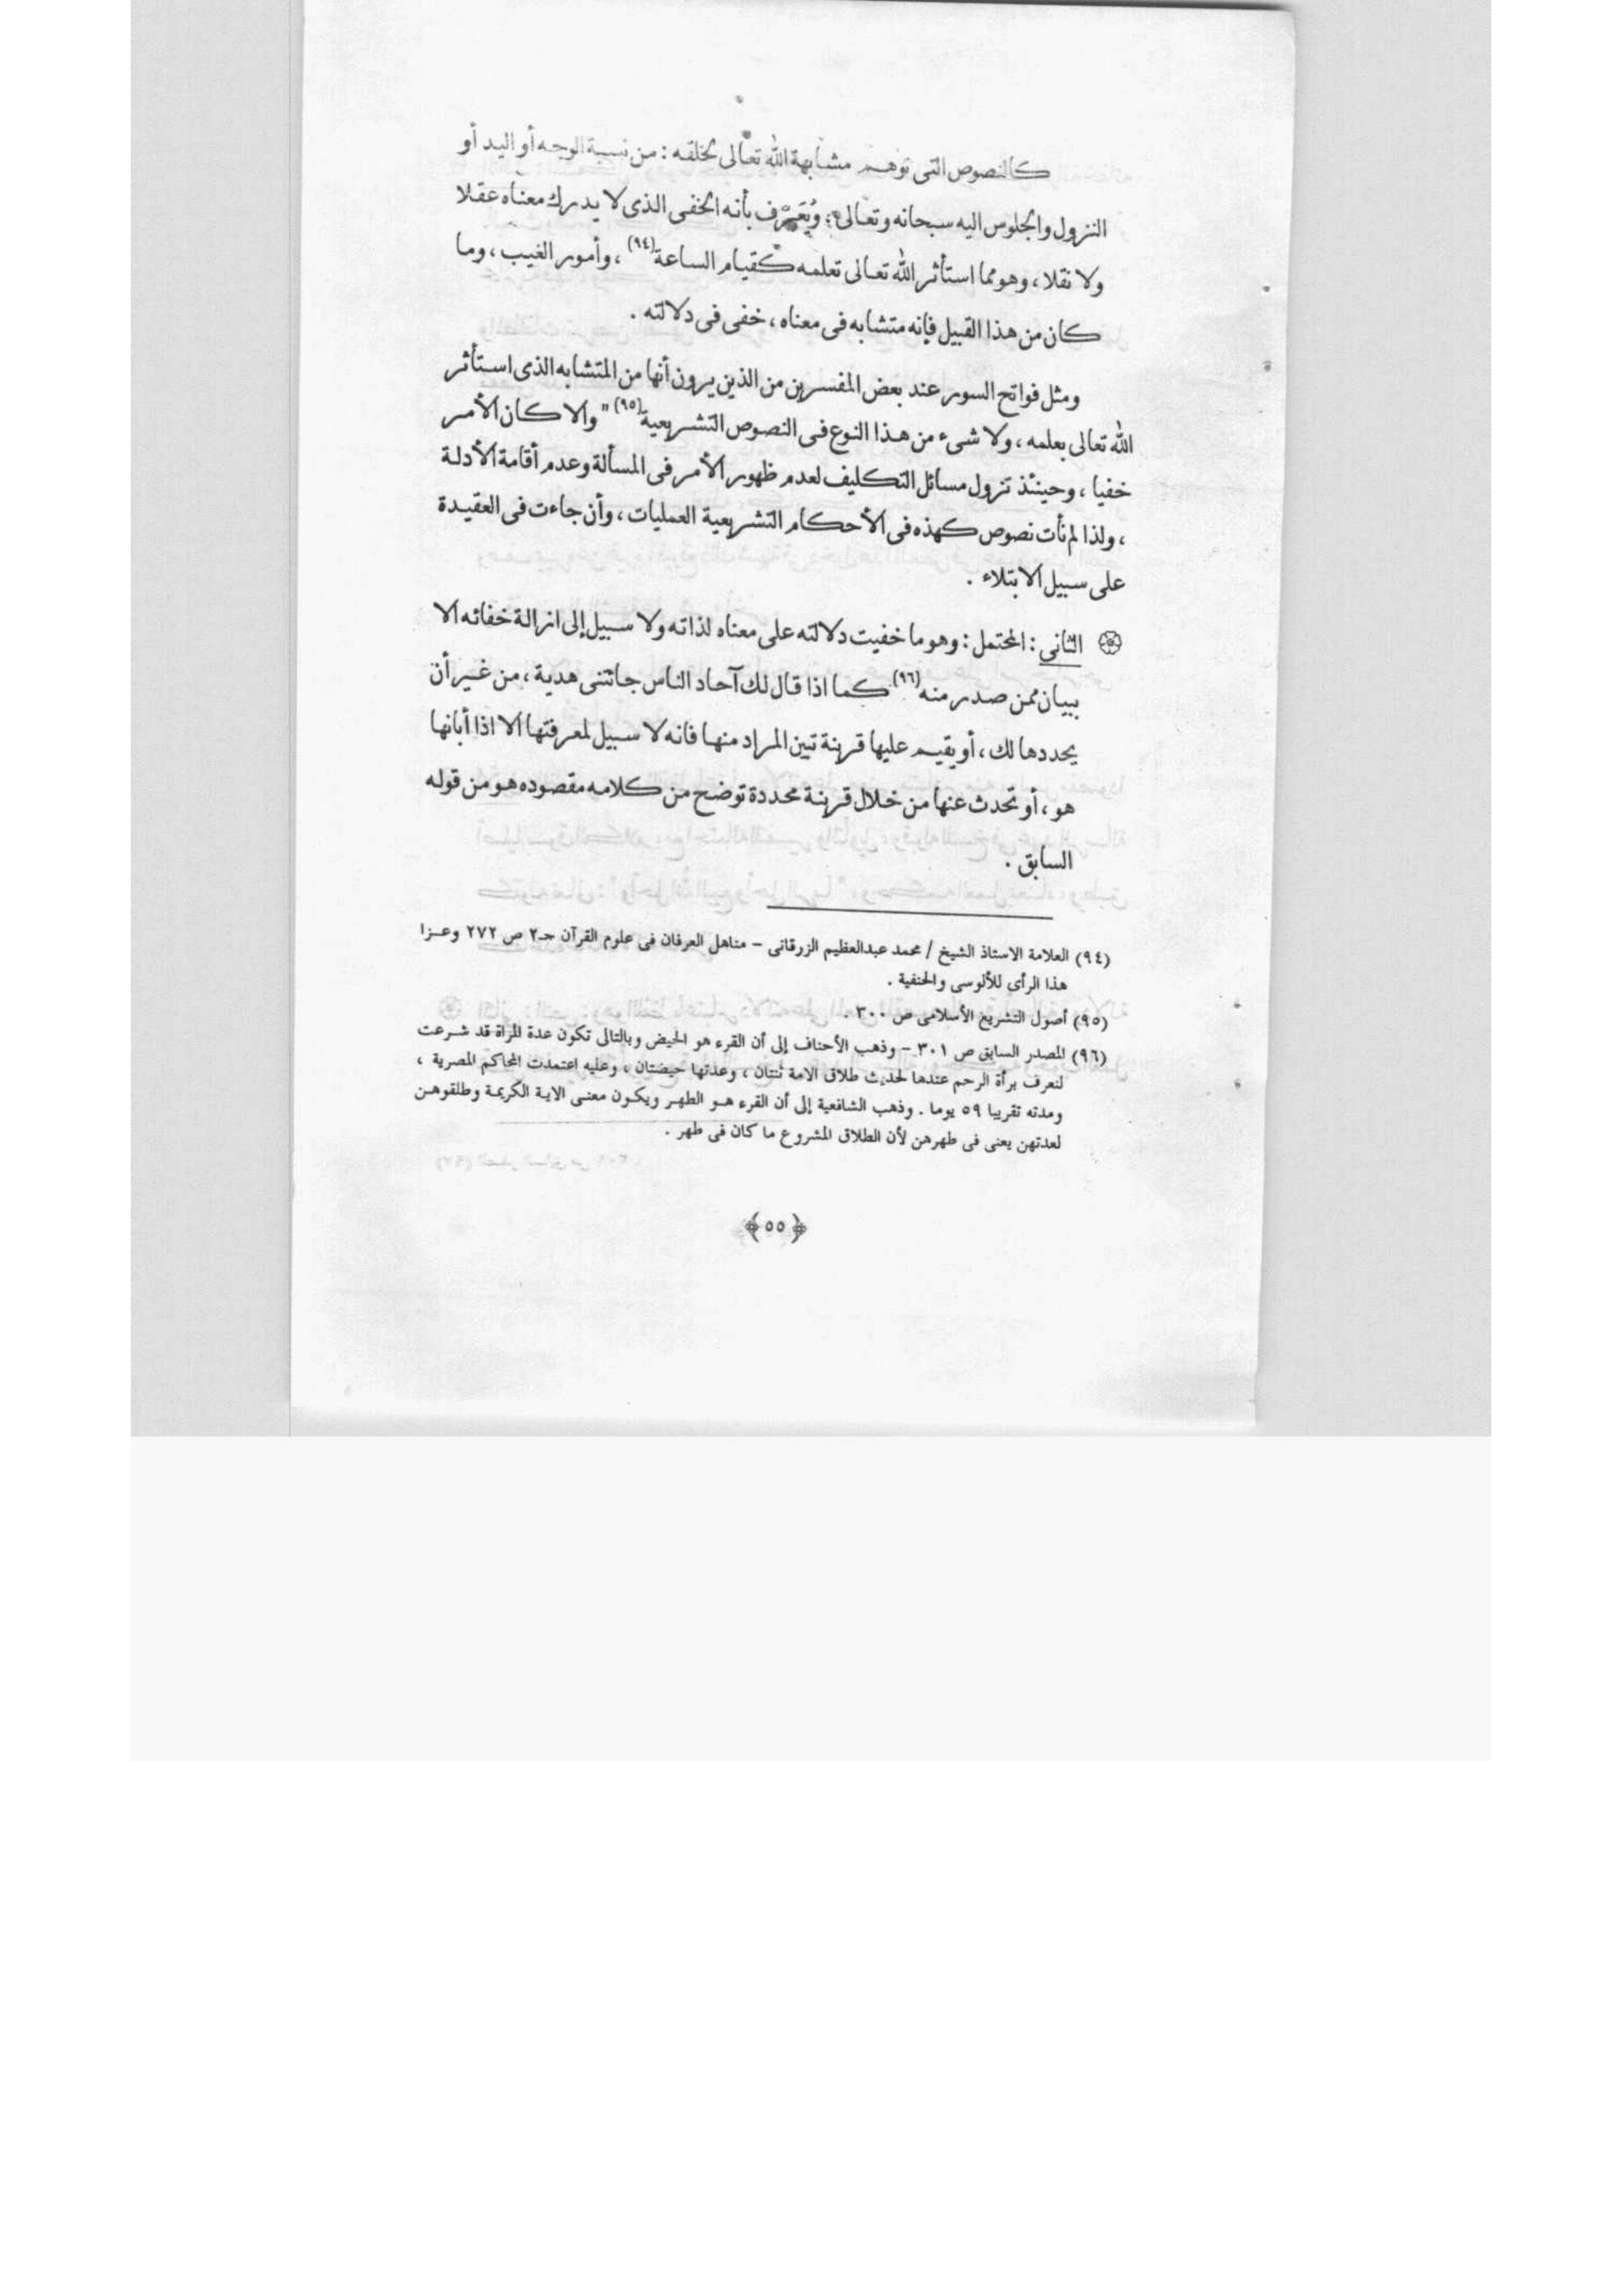 كالنصوص التى توهم مشابهة الله تعالى لخلقه : من نسبة الوجه أو اليد أو
النزول والجلوس اليه سبحانه وتعالى ؛ ويُعَرَّف بأنه الخفى الذى لا يدرك معناه عقلا
ولا نقلا ، وهو مما استأثر الله تعالى تعلمه كقيام الساعة (٩٤) ، وأمور الغيب ، وما
كان من هذا القبيل فإنه متشابه فى معناه ، خفى فى دلالته .
ومثل فواتح السور عند بعض المفسرين من الذين يرون أنها من المتشابه الذى استأثر
الله تعالى بعلمه ، ولا شىء من هذا النوع فى النصوص التشريعية (٩٥) " والا كان الأمر
خفيا ، وحينئذ تزول مسائل التكليف لعدم ظهور الأمر فى المسألة وعدم أقامة الأدلة
، ولذا لم تأت نصوص كهذه فى الأحكام التشريعية العمليات ، وأن جاءت فى العقيدة
على سبيل الابتلاء .
الثانى : المحتمل : وهو ما خفيت دلالته على معناه لذاته ولا سبيل إلى ازالة خفائه الا
ببيان ممن صدر منه (٩٦) كما اذا قال لك آحاد الناس جائتنى هدية ، من غير أن
يحددها لك ، أو يقيم عليها قرينة تبين المراد منها فانه لا سبيل لمعرفتها الا اذا أبانها
هو ، أو تحدث عنها من خلال قرينة محددة توضح من كلامه مقصوده هو من قوله
السابق .
(٩٤) العلامة الاستاذ الشيخ / محمد عبدالعظيم الزرقانى – مناهل العرفان فى علوم القرآن حـ٢ ص ٢٧٢ وعزا
هذا الرأى للألوسى والحنفية .
(٩٥) أصول التشريع الأسلامى ص ٣٠٠ .
(٩٦) المصدر السابق ص ٣٠١ – وذهب الأحناف إلى أن القرء هو الحيض وبالتالى تكون عدة المرأة قد شرعت
لنعرف برأة الرحم عندها لحديث طلاق الامة ثنتان ، وعدتها حيضتان ، وعليه اعتمدت المحاكم المصرية ،
ومدته تقريبا ٥٩ يوما . وذهب الشافعية إلى أن القرء هو الطهر ويكون معنى الاية الكريمة وطلقوهن
لعدتهن يعنى فى طهرهن لأن الطلاق المشروع ما كان فى طهر .
﴿٥٥﴾